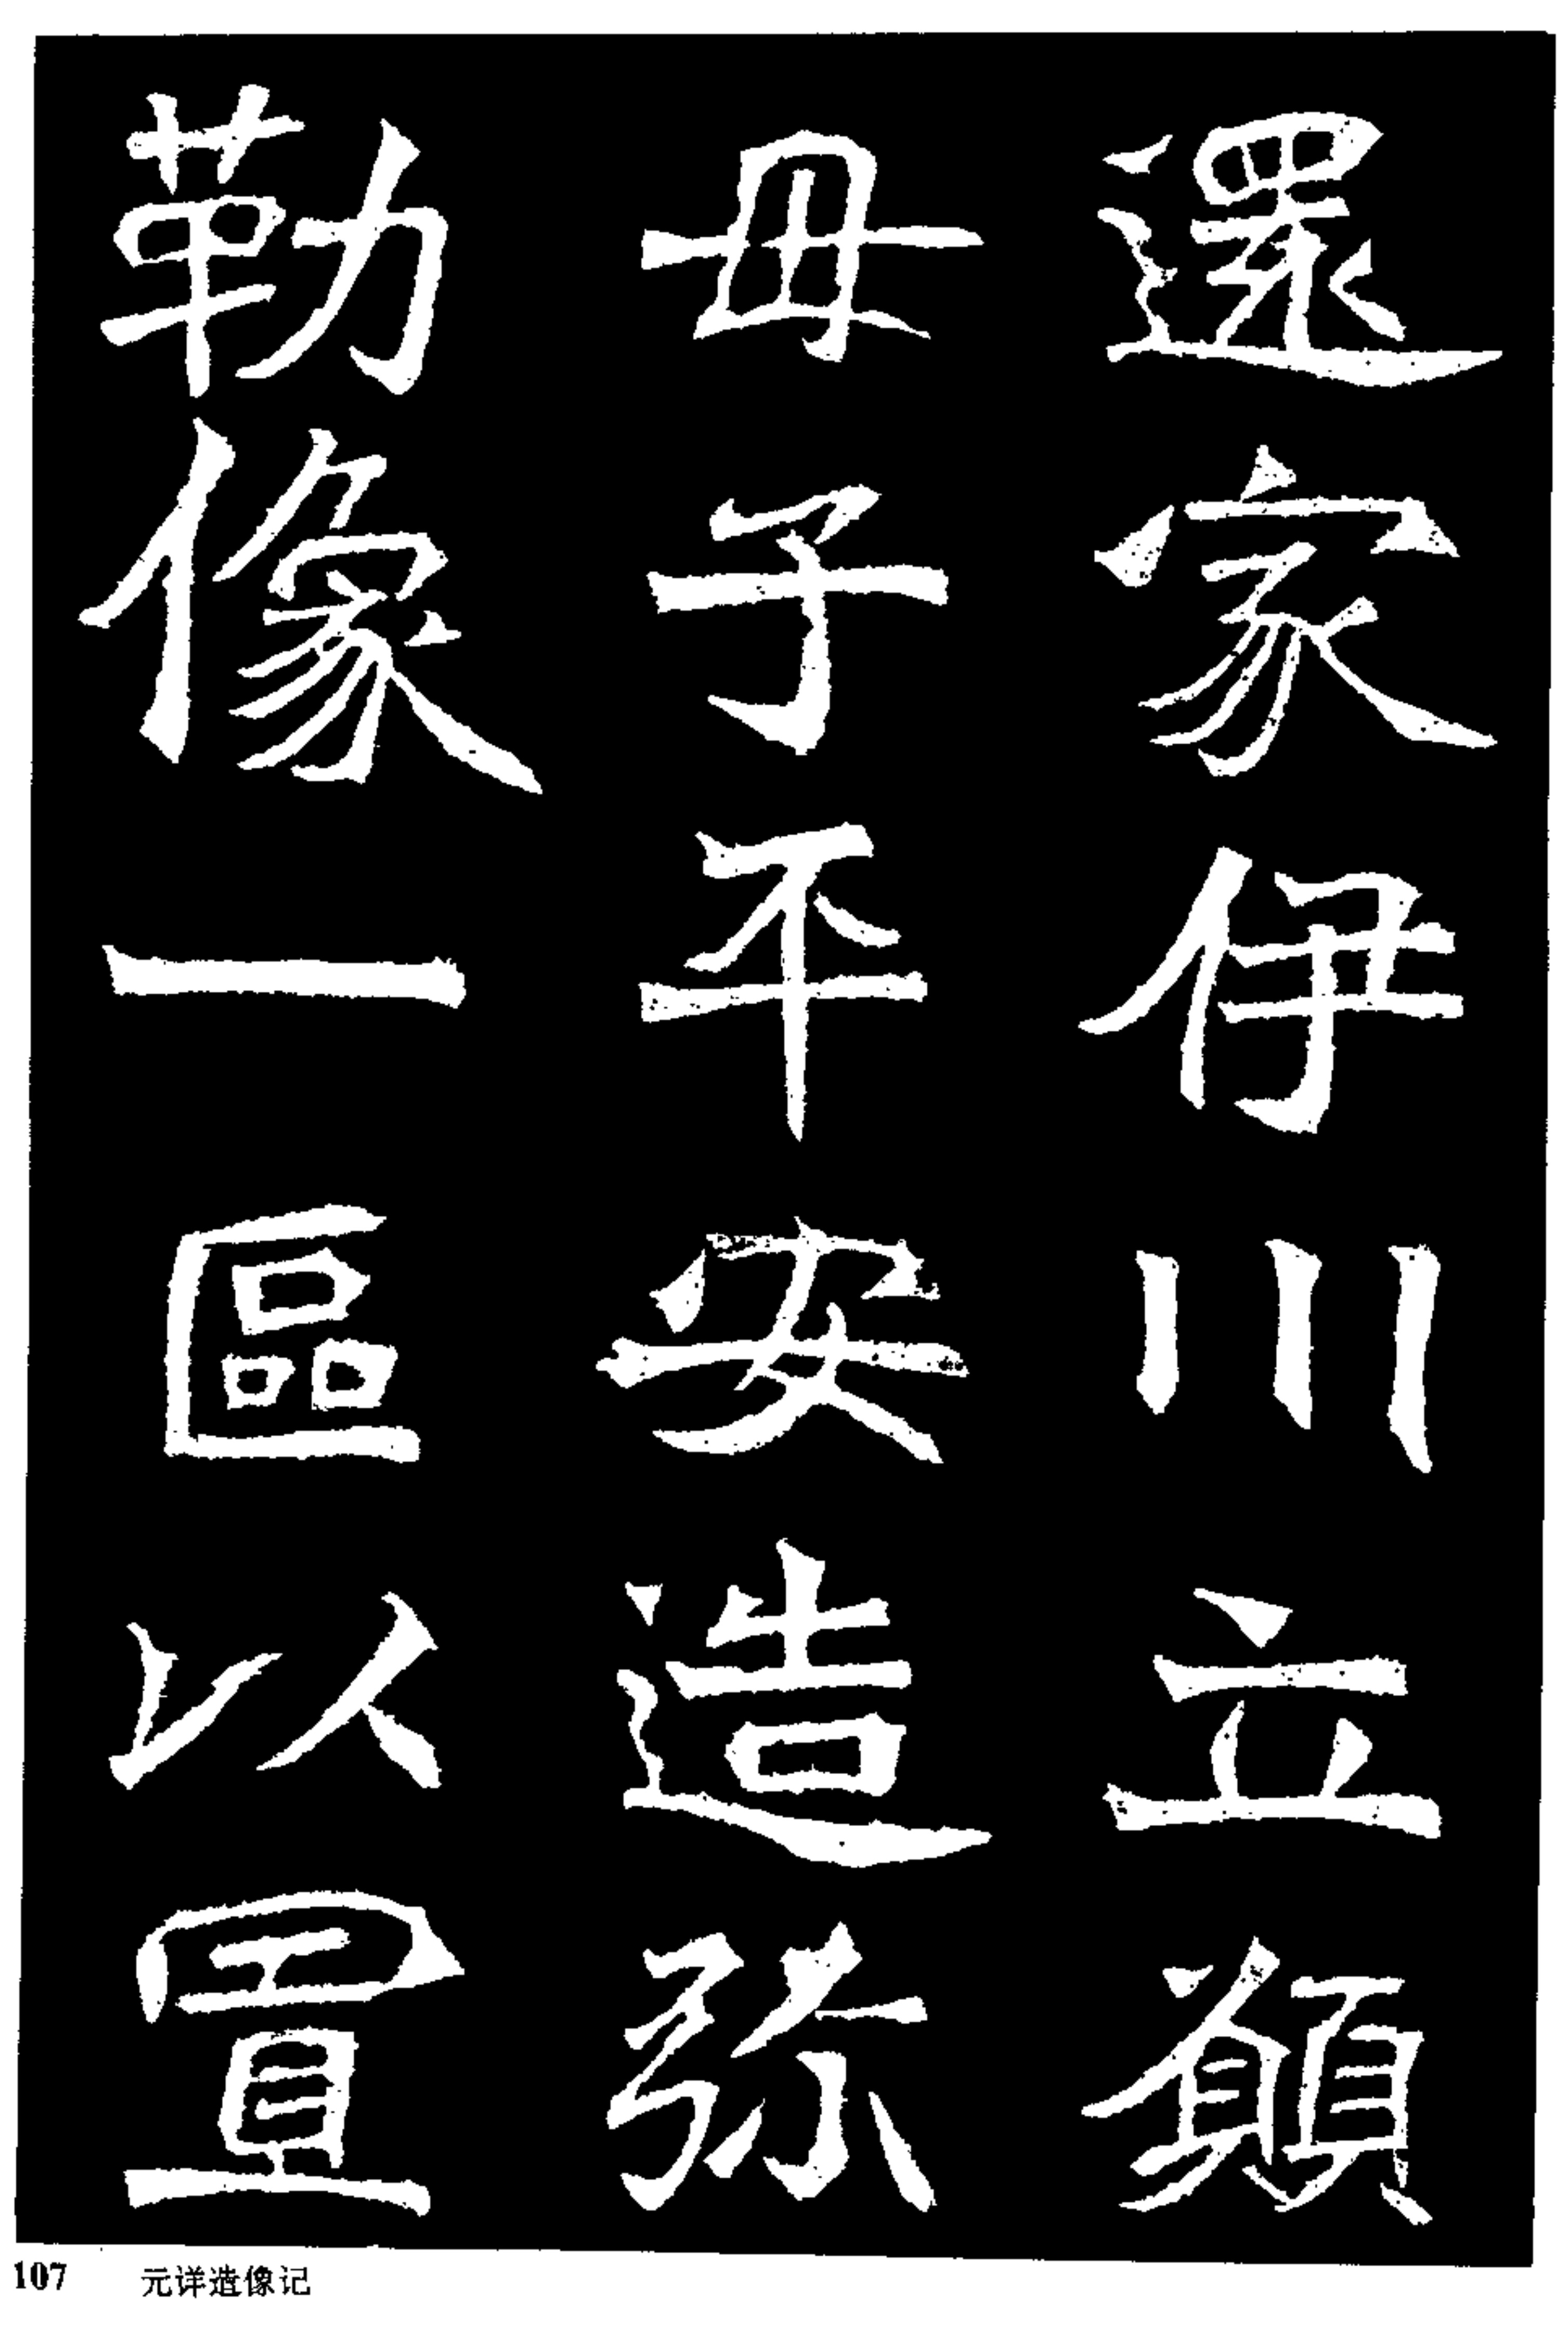 還家伊川立願
母子平安造弥
勒像一區以置
107 元详造像记